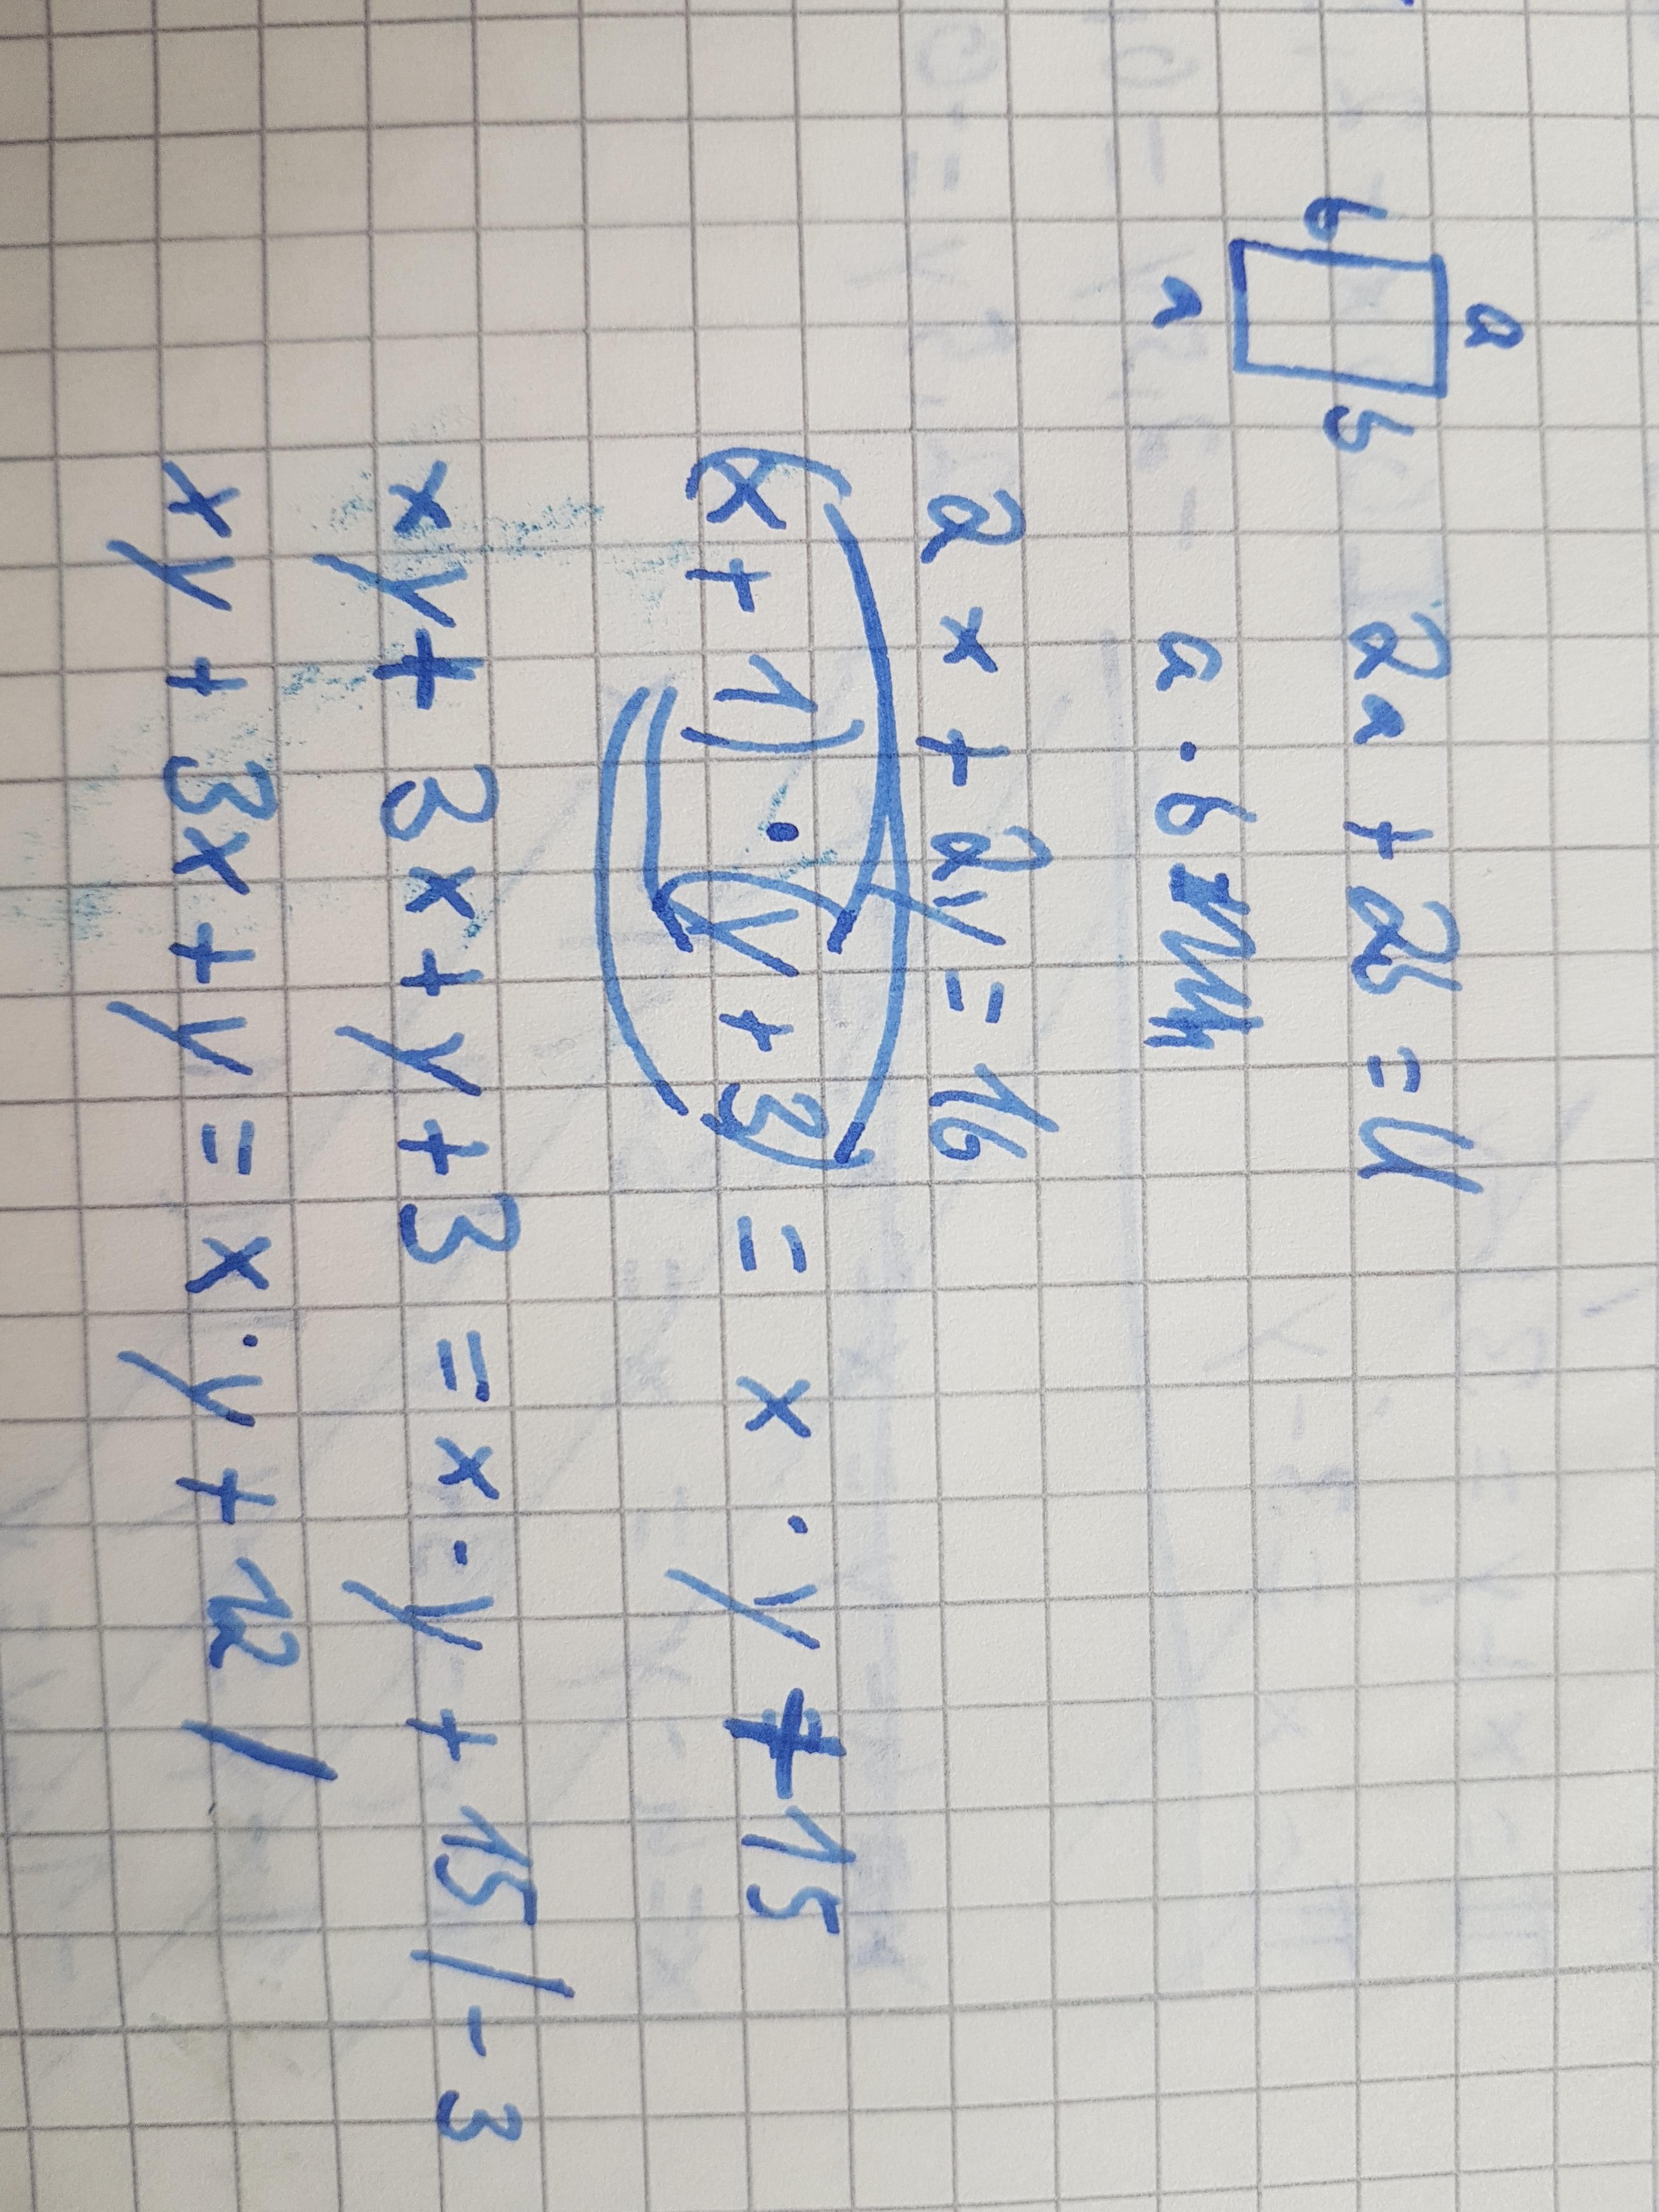 a
b b
a
2a + 2b = U
a · b
2x + 2y = 16
(x + 1) · (y + 3) = x · y + 15
xy + 3x + y + 3 = x · y + 15 / - 3
xy + 3x + y = x · y + 12 /